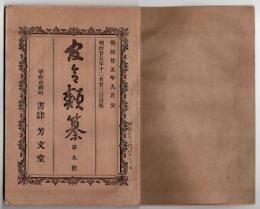 明治廿五年九月分
明治廿五年十二月廿三日出版
官令類纂
第九號
甲府市柳町
書肆 芳文堂